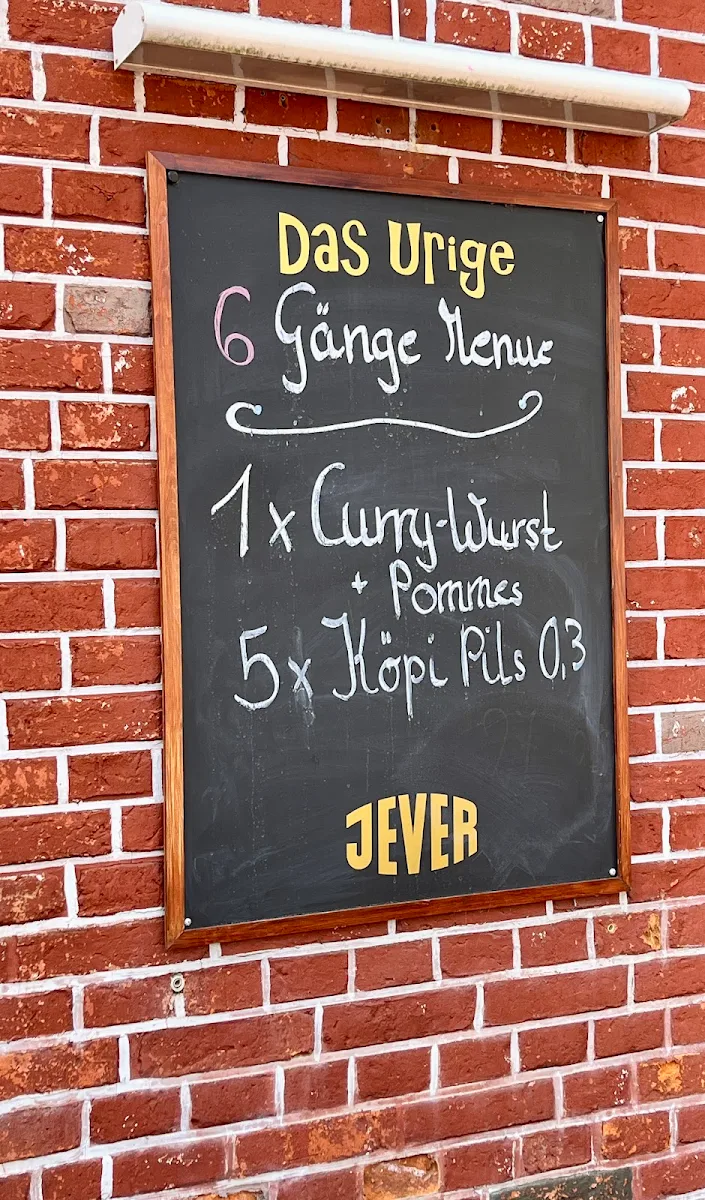 Das Urige
6 Gänge Menue
1x Curry-Wurst
+ Pommes
5x Köpi Pils 0,3
JEVER